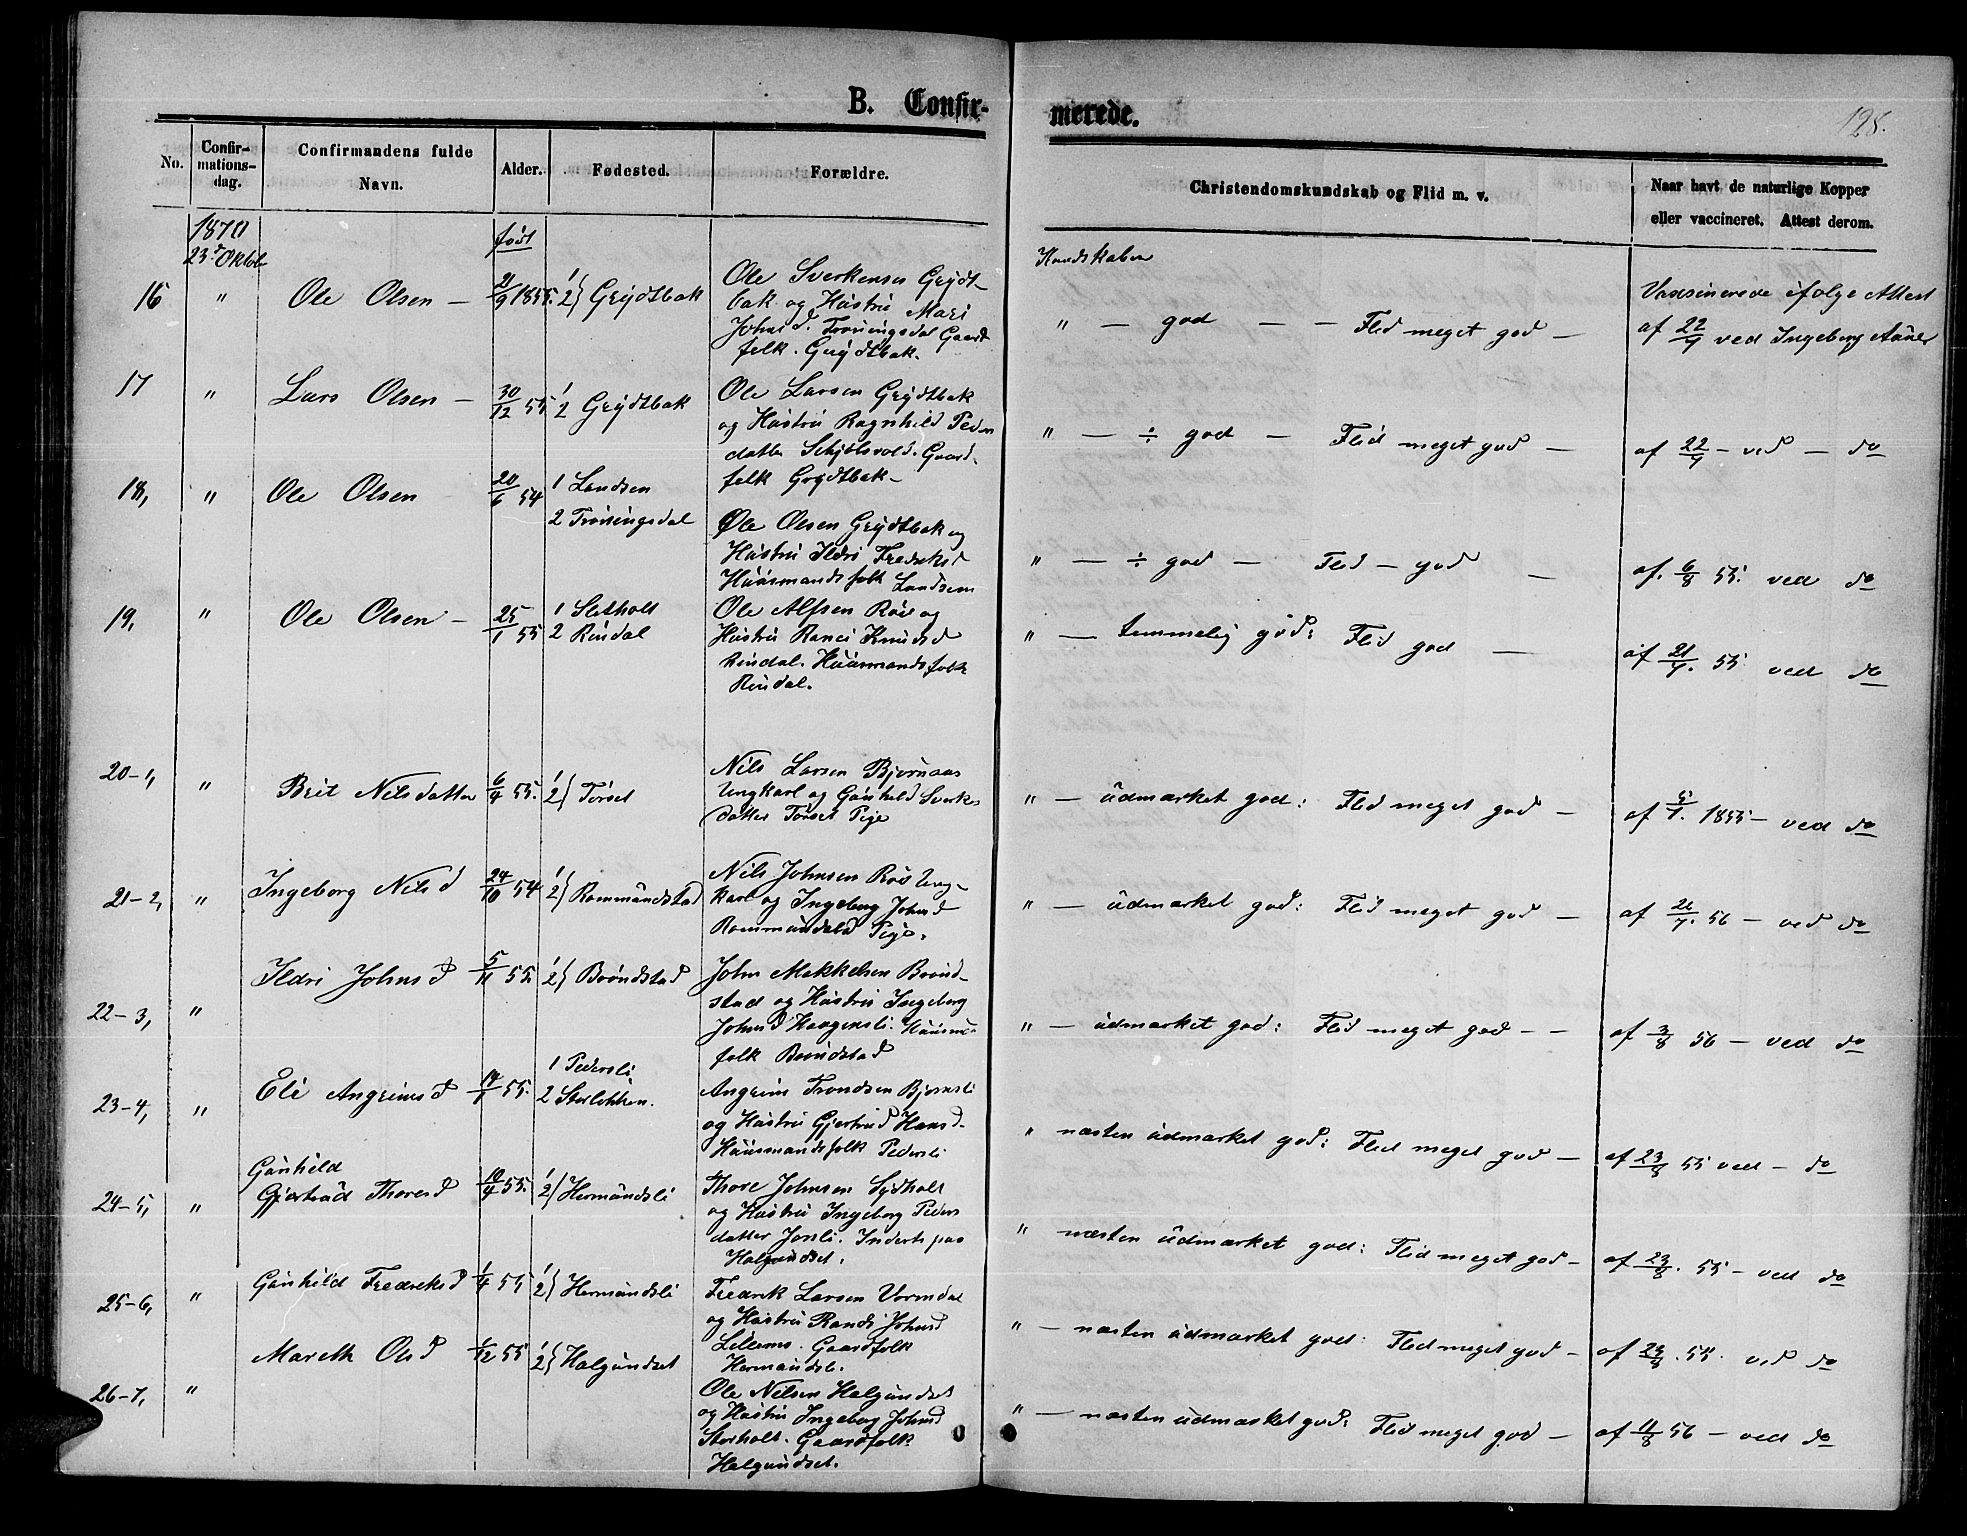 B. Confir-
merede.
128.
No.
Confir-
mations-
dag.
Confirmandens fulde
Navn.
Alder.
Fødested.
Forældre.
Christendomskundskab og Flid m. v.
Naar havt de naturlige Kopper
eller vaccineret. Attest derom.
1870
23de Oktob
født
Kundskaber
16 " Ole Olsen — 21/9 1855. 1/2} Grydtbak
Ole Sverkensen Grydt-
bak og Hustru Mari
Johnsd. Trøningsdal Gaard
folk. Grydtbak.
" — god — — Flid meget god —
Vaksinerede ifølge Attest
af 22/9 ved Ingeborg Aune
17 " Lars Olsen — 30/12 55 1/2 Grydtbak
Ole Larsen Grydtbak
og Hustru Ragnhild Peder
datter Schjølsvold. Gaard-
folk Grydtbak —
" — ÷ god — Flid meget god —
af 22/9 — ved — do
18, " Ole Olsen 20/6 54
1 Landsen
2 Trøningsdal
Ole Olsen Grydtbak og
Hustru Ildri Fredriksd
Huusmandsfolk Landsem
" — ÷ god — Flid — god —
af. 6/8 55. ved do
19, " Ole Olsen — 25/1 55
1 Sletholt
2 Rindal
Ole Alfsen Røe og
Hustru Ranei Knudsd
Rindal. Huusmandsfolk
Rindal.
" — temmelig god: Flid god —
af 21/7. 55 ved do
20–1, " Brit Nilsdatter 6/4 55. 1/2} Tørset
Nils Larsen Bjørnaas
Ungkarl og Gunhild Sverk-
datter Tørset Pige
" — udmærket god: Flid meget god —
af 5/7. 1855 — ved do
21–2, " Ingeborg Nilsd 24/10 54 1/2} Rommundstad
Nils Johnsen Røe Ung-
karl og Ingeborg Johnsd
Rommundstad Pige.
" — udmærket god: Flid meget god —
af 26/7. 56 — ved do
22–3, " Ildri Johnsd 5/11 55. 1/2} Brøndstad
John Mekkelsen Brønd-
stad og Hustru Ingeborg
Johnsd Haagensli. Huusm-
folk Brøndstad
" — udmærket god: Flid meget god — —
af 3/8 56 — ved do
23–4, " Eli Angrimsd 55.
1 Pedersli
2 Storløkken.
Angrim Trondsen Bjørnsli
og Hustru Gjertrud Hansd-
Huusmandsfolk Pedersli
" næsten udmærket god: Flid meget god —
af 23/8 55 ved — do
24–5, " Gunhild
Gjertrud Thoresd 10/4 55. 1/2} Hermundsli
Thore Johnsen Sydholt
og Hustru Ingeborg Peders
datter Jonsli. Inderst paa
Halgundset.
" næsten udmærket god: Flid meget god —
af 23/8. 55 — ved do
25–6, " Gunhild Fredriksd 1/4 55 1/2} Hermundsli
Fredrik Larsen Vormdal
og Hustru Randi Johnsd
Lillemo. Gaardfolk
Hermundsli.
" — næsten udmærket god: Flid meget god —
af 23/8. 55. ved do
26–7, " Mareth Olsd 55 1/2} Halgundset
Ole Nilsen Halgundset
og Hustru Ingeborg Johnsd
Storholt. Gaardfolk
Halgundset.
" — næsten udmærket god: Flid meget god —
af 11/8 56 — ved do